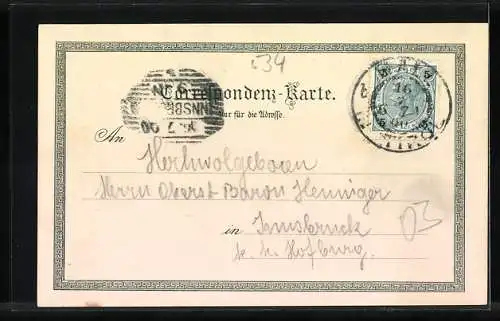 634
Correspondenz-Karte.
Nur für die Adresse.
INNSBR
16
7
An
Hochwolgeboren
Herrn Oberst Baron Henniger
in Innsbruck
k. k. Hofburg.
03